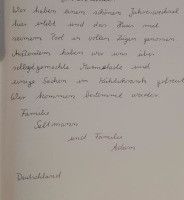 Wir haben einen schönen Jahreswechsel
hier erlebt und das Haus mit
seinem Pool in vollen Zügen genossen
Außerdem haben wir uns über
selbstgemachte Marmelade und
einige Sachen im Kühlschrank gefreut
Wir kommen bestimmt wieder
Familie
und Familie
Deutschland